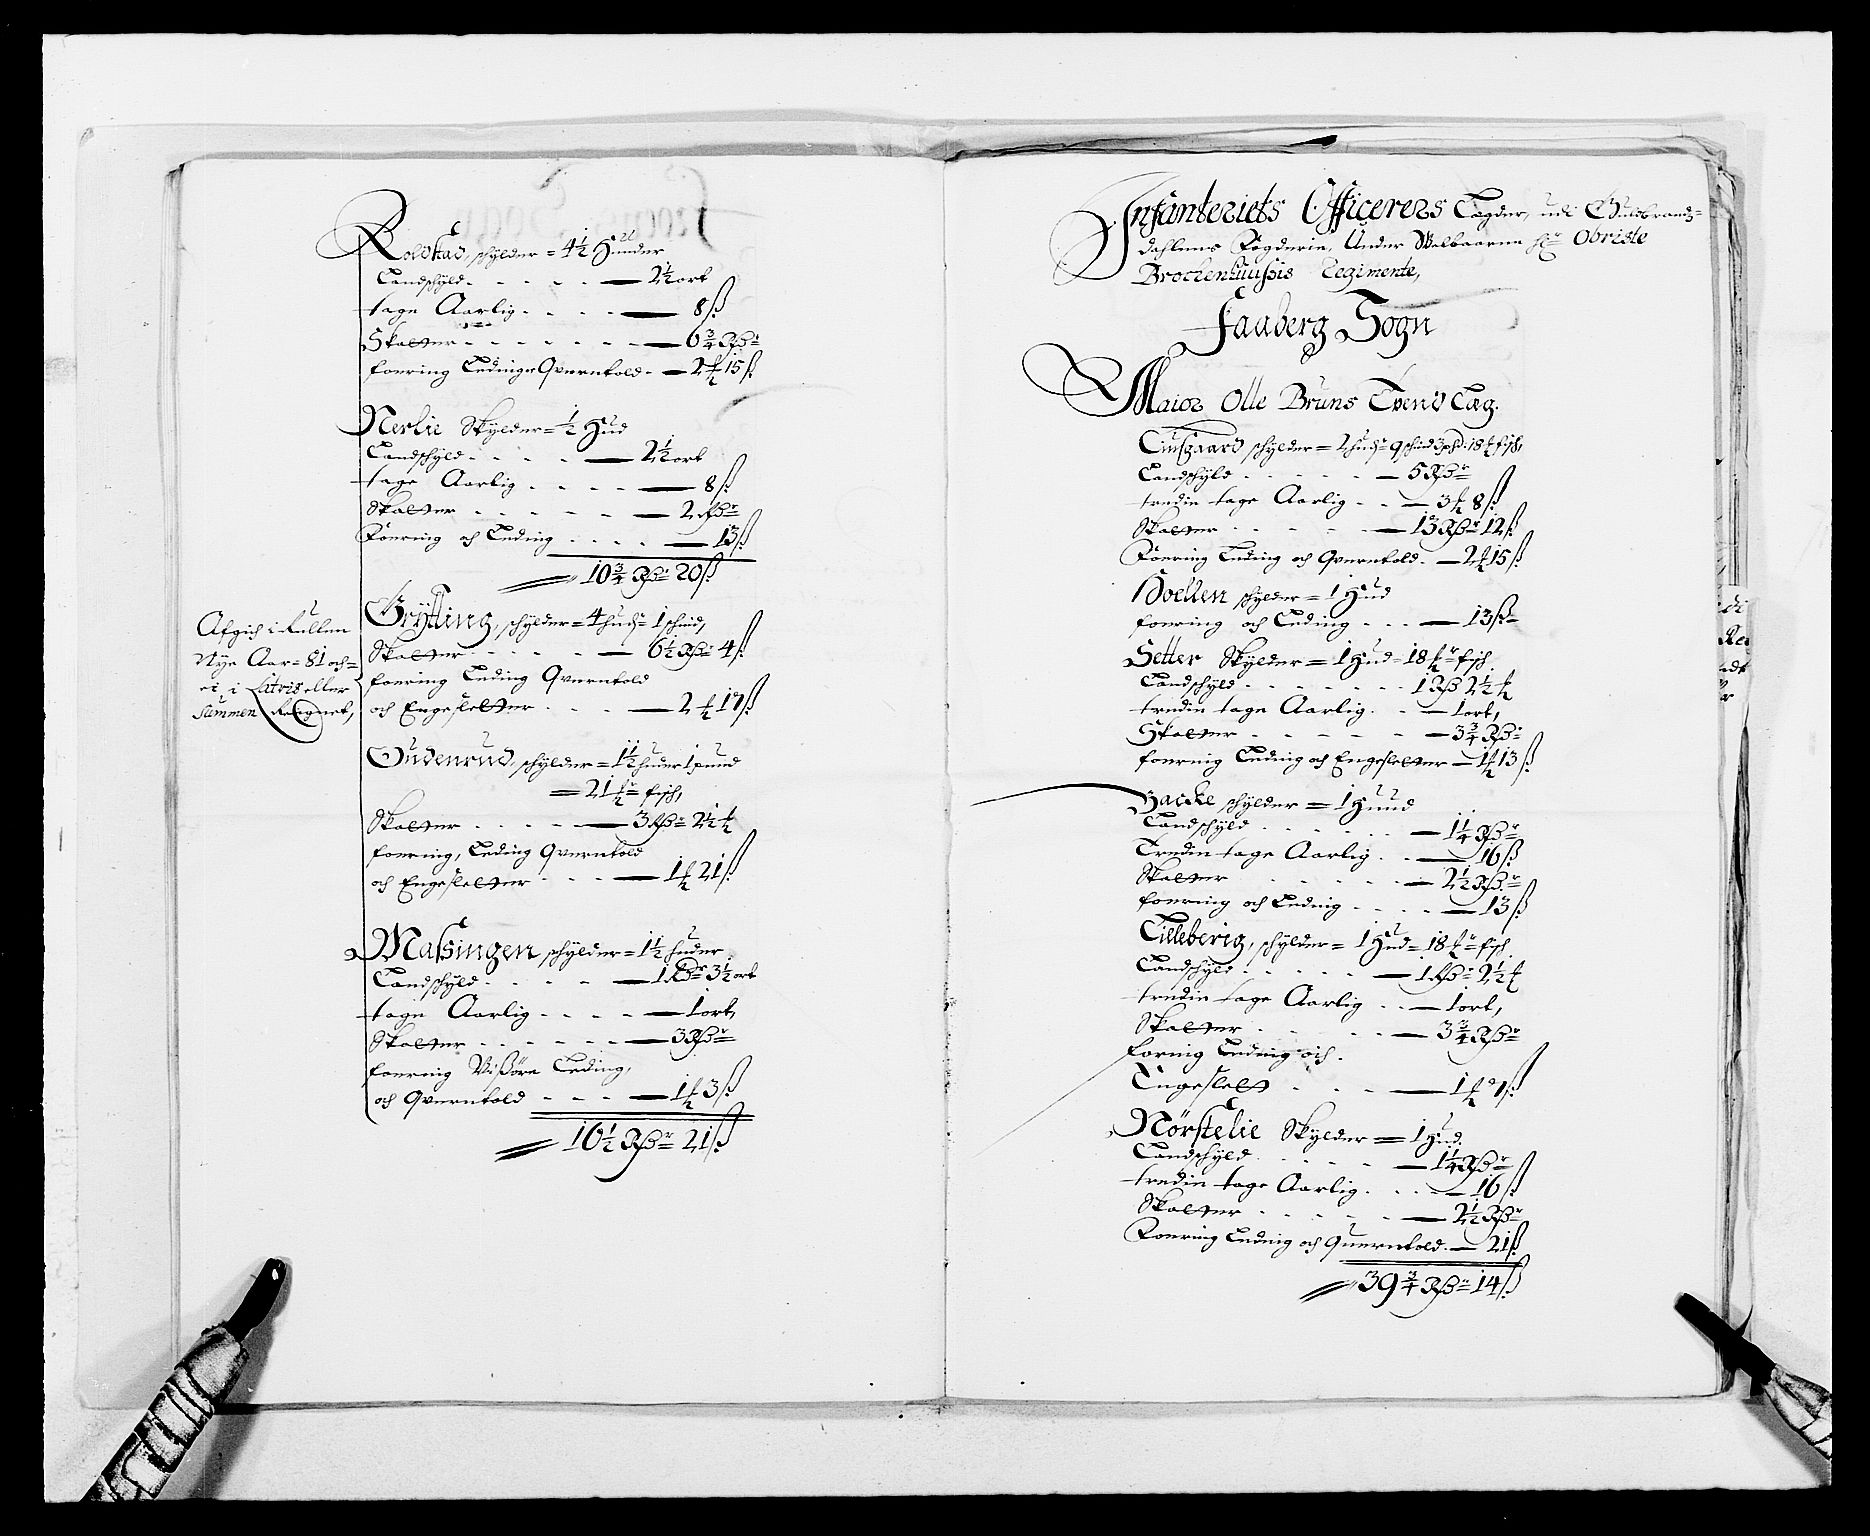 Roldstad, schylder = 4½ Huuder
Landschyld - - - - - 2½ ort
tage Aarlig - - - - 8 ß
Skatter - - - - - - - 6¾ Rdr
foering Leding Qverntold - 2 15 ß
Nerlie Skylder = ½ Hud
Landschyld - - - - 2½ ort
tage Aarlig - - - - 8 ß
Skatter - - - - - - 2 Rdr
Foering och Leding - - - - 13 ß
10¾ Rdr 20 ß
Afgich i Rullen
Nÿe Aar 81 och
ei i Latris eller
Summen Reignet,
Grÿtting, schylder = 4 hudr 1 schind,
Skatter - - - - - 6½ Rdr 4 ß
foering Leding Qverntold
och Engesletter - - - 2 17 ß
Gudenrud, schylder = 1½ huder 1 pund
= 21 fisch,
Skatter - - - - 3 Rdr 2½
foering, Leding Qverntold
och Engesletter - - - 1 21 ß
Massingen schylder = 1½ huder
Landschyld - - - - 1 Rdr 3½ ort
tage Aarlig - - - - 1 ort
Skatter - - - - - - 3 Rdr
foering Vissøre Leding,
och Qverntold - - - - 1 3 ß
10½ Rdr 21 ß
Infanteriets Officerers Lægder, udi Guldbrands=
dahlens Fogderie, Under Welbaarne hr Obriste
Brochenhuussis Regimente,
Faaberg Sogn
Maior Olle Bruns Tvend Læg.
Liusgaard schylder = 2 hudr 9 schind 3 pd: 18 fisch,
Landschyld - - - - - 5 Rdr
tredie tage Aarlig - - 3 8 ß
Skatter - - - - - 13 Rdr 12 ß
Foering Leding och Qverntold - 2 15 ß
Hoellen schylder = 1 Hud
foering och Leding - - - 13 ß
Setter Skylder = 1 Hud = 18 fisch
Landschyld - - - - - - - 1 Rd 2½
tredie tage Aarlig - - 1 ort,
Skatter - - - - - - 3¾ Rdr
foering Leding och Engesletter - 1 13 ß
Hacke schylder = 1 Huud
Landschyld - - - - - - 1¼ Rdr
Tredie tage Aarlig - - 16 ß
Skatter - - - - - 2½ Rdr
foering och Leding - - - - 13 ß
Lilleberig, schylder = 1 Hud = 18 fisch
Landschyld - - - - - 1 Rdr 2½
tredie tage Aarlig - - 1 ort,
Skatter - - - - - 3¾ Rdr
foring Leding och
Engeslett - - - - 1
Nørstelie Skylder = 1 Hud.
Landschyld - - - - - 1¼ Rdr
tredie tage Aarlig - - - 16 ß
Skatter - - - - - 2½ Rdr
Foering Leding och Querntold - 21 ß
39¾ Rdr 14 ß